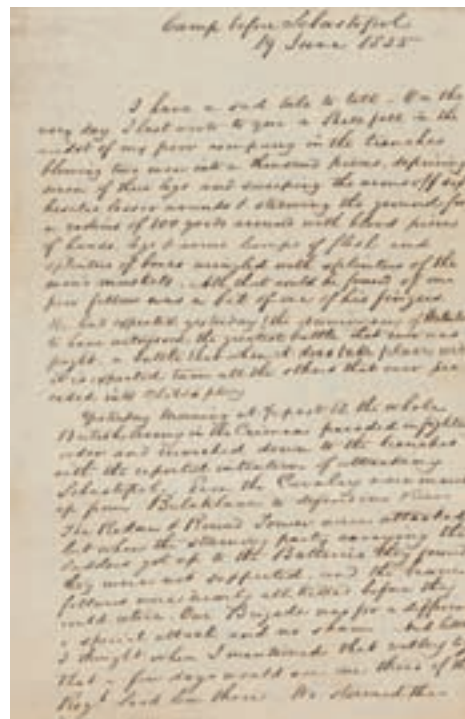 Camp before Sebastopol
19 June 1855
I have a sad tale to tell. On the
very day I last wrote to you a Shell fell in the
midst of my poor company in the trenches
blowing two men into a thousand pieces, depriving
seven of their legs and sweeping the arms off six
besides lesser wounds & strewing the ground for
a radius of 100 yards around with blood pieces
of hands, legs & arms lumps of flesh and
splinters of bones mingled with splinters of the
men's muskets. All that could be found of one
poor fellow was a bit of one of his fingers
We had expected yesterday (the anniversary of
to have the greatest battle that ever was
fought, a battle that when it does take place will
it is expected turn all the others that ever pre
ceded into child's play
Yesterday Morning at ½ past 12 the whole
British Army in the Crimea paraded in fighting
order and marched down to the trenches
with the reported intention of attacking
Sebastopol. Even the Cavalry were moved
up from Balaklava to
The Redan & Round Tower were attacked
but when the storming party carrying the
ladders got up to the Batteries they found
they were not supported, and the brave
fellows were nearly all killed before they
could retire. Our Brigade was for a different
a special attack and no sham.
I thought when I mentioned that
that a few days would see me three of the
Regt laid low there. We stormed the